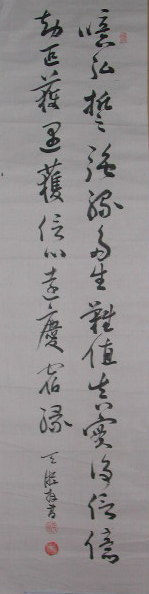 噫弘誓強縁多生難値真實浄信億
劫叵獲遇獲信心遠慶宿縁